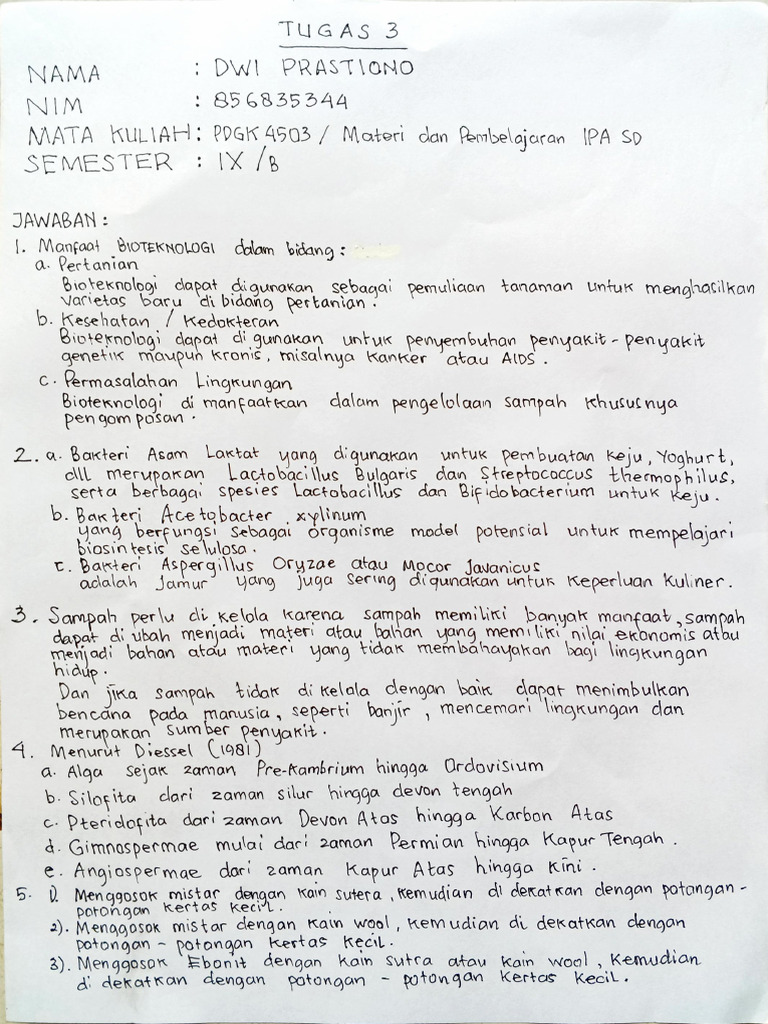 TUGAS 3
NAMA : DWI PRASTIONO
NIM : 856835344
MATA KULIAH : PDGK 4503 / Materi dan Pembelajaran IPA SD
SEMESTER : IX /B
JAWABAN :
1. Manfaat BIOTEKNOLOGI dalam bidang :
a. Pertanian
Bioteknologi dapat digunakan sebagai pemuliaan tanaman untuk menghasilkan
varietas baru di bidang pertanian.
b. Kesehatan / Kedokteran
Bioteknologi dapat di gunakan untuk penyembuhan penyakit - penyakit
genetik maupun kronis, misalnya kanker atau AIDS.
c. Permasalahan Lingkungan
Bioteknologi di manfaatkan dalam pengelolaan sampah khususnya
pengomposan.
2. a. Bakteri Asam Laktat yang digunakan untuk pembuatan keju, Yoghurt,
dll merupakan Lactobacillus Bulgaris dan Streptococcus thermophilus,
serta berbagai spesies Lactobacillus dan Bifidobacterium untuk keju.
b. Bakteri Acetobacter xylinum
yang berfungsi sebagai organisme model potensial untuk mempelajari
biosintesis selulosa.
c. Bakteri Aspergillus Oryzae atau Mocor Javanicus
adalah Jamur yang juga sering digunakan untuk keperluan kuliner.
3. Sampah perlu di kelola karena sampah memiliki banyak manfaat, sampah
dapat di ubah menjadi materi atau bahan yang memiliki nilai ekonomis atau
menjadi bahan atau materi yang tidak membahayakan bagi lingkungan
hidup.
Dan jika sampah tidak di kelola dengan baik dapat menimbulkan
bencana pada manusia, seperti banjir, mencemari lingkungan dan
merupakan sumber penyakit.
4. Menurut Diessel (1981)
a. Alga sejak zaman Pre-Kambrium hingga Ordovisium
b. Silofita dari zaman silur hingga devon tengah
c. Pteridofita dari zaman Devon Atas hingga Karbon Atas
d. Gimnospermae mulai dari zaman Permian hingga Kapur Tengah.
e. Angiospermae dari zaman Kapur Atas hingga Kini.
5. 1). Menggosok mistar dengan kain sutera, kemudian di dekatkan dengan potongan -
potongan kertas kecil.
2). Menggosok mistar dengan kain wool, kemudian di dekatkan dengan
potongan - potongan kertas kecil.
3). Menggosok Ebonit dengan kain sutra atau kain wool, kemudian
di dekatkan dengan potongan - potongan kertas kecil.